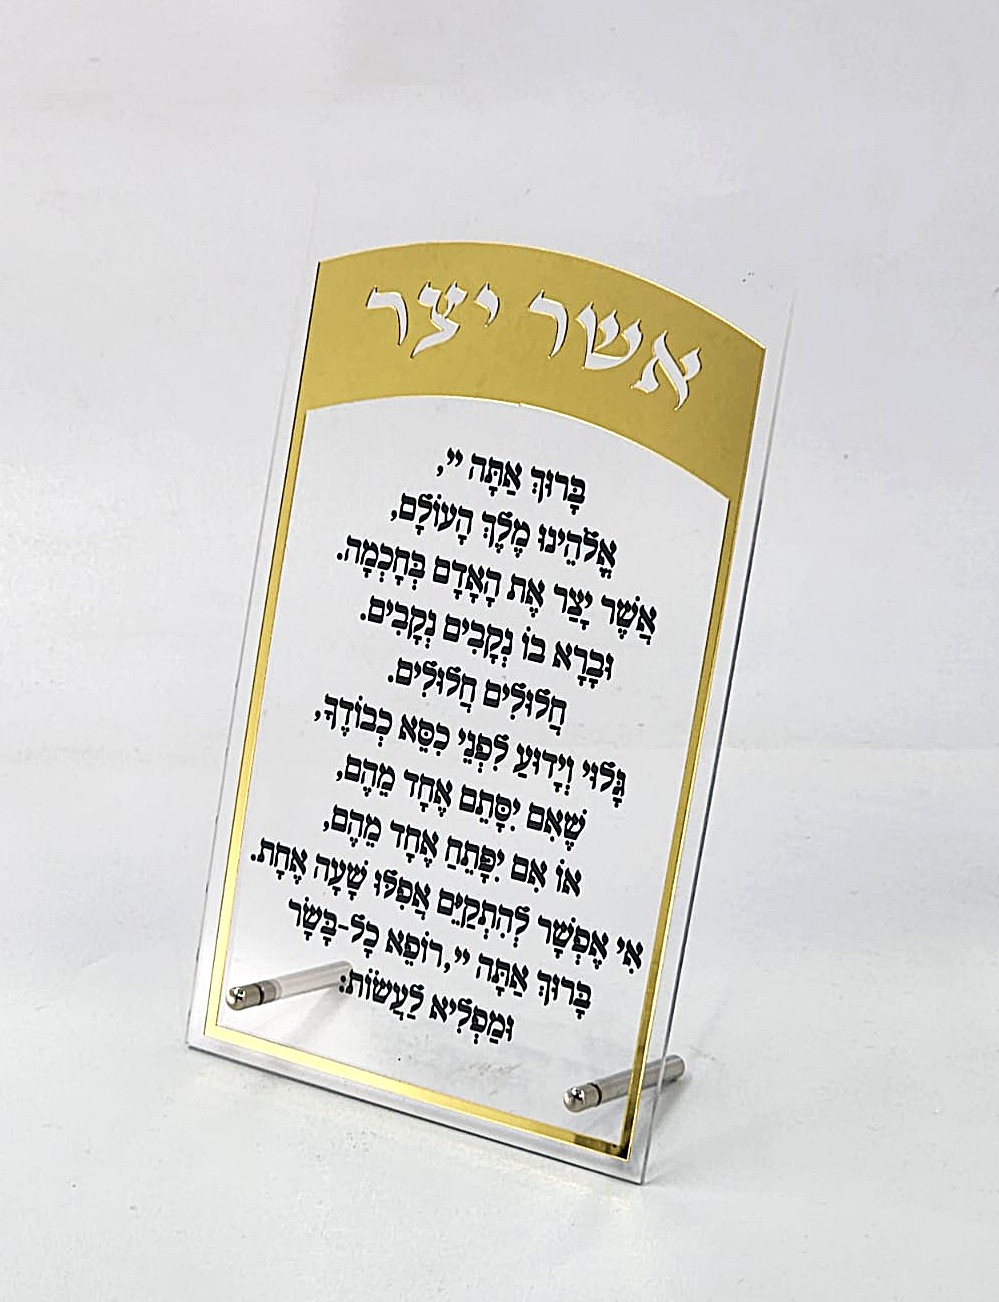 אשר יצר
בָּרוּךְ אַתָּה יי,
אֱלֹהֵינוּ מֶלֶךְ הָעוֹלָם,
אֲשֶׁר יָצַר אֶת הָאָדָם בְּחָכְמָה.
וּבָרָא בוֹ נְקָבִים נְקָבִים.
חֲלוּלִים חֲלוּלִים.
גָּלוּי וְיָדוּעַ לִפְנֵי כִסֵּא כְבוֹדֶךָ,
שֶׁאִם יִסָּתֵם אֶחָד מֵהֶם,
אוֹ אִם יִפָּתֵחַ אֶחָד מֵהֶם,
אִי אֶפְשָׁר לְהִתְקַיֵּם אֲפִלּוּ שָׁעָה אֶחָת.
בָּרוּךְ אַתָּה יי,רוֹפֵא כָל-בָּשָׂר
וּמַפְלִיא לַעֲשׂוֹת: